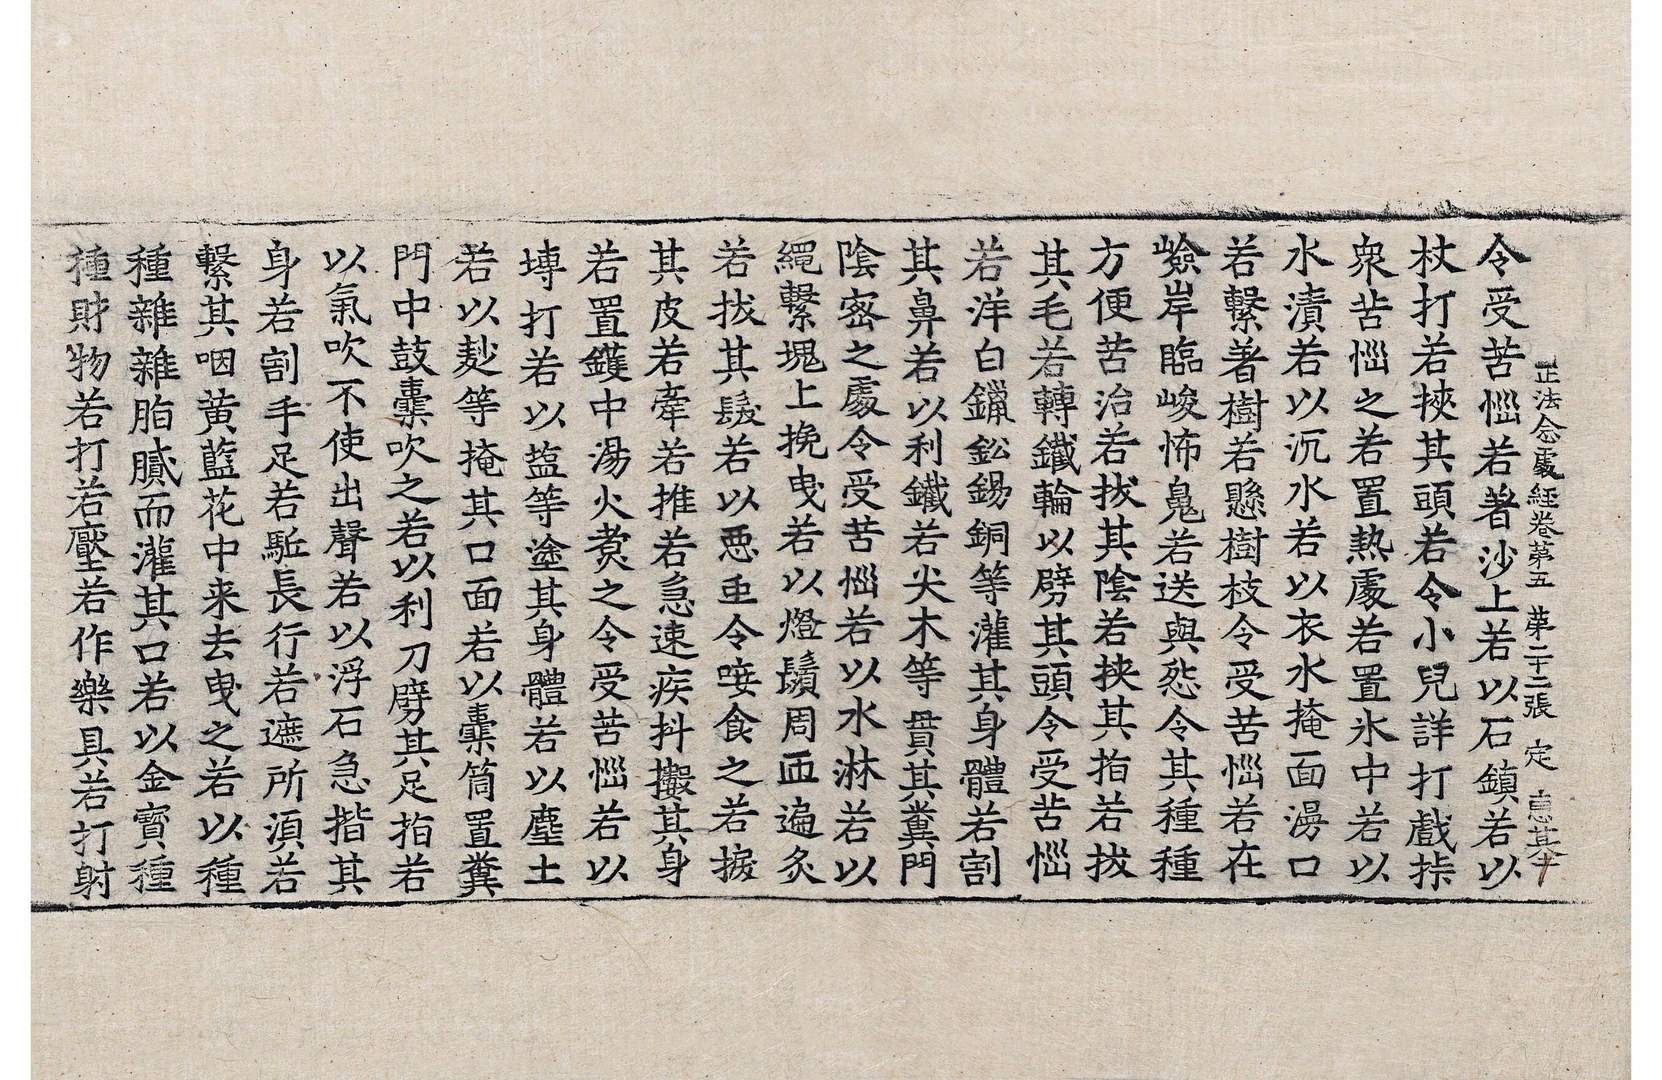 正法念處經卷第五 第二十二張 定
令受苦惱若著沙上若以石鎮若以
杖打若挾其頭若令小兒詳打戲掉
衆苦惱之若置熱處若置氷中若以
水漬若以沉水若以衣水掩面湯口
若繫著樹若懸樹枝令受苦惱若在
嶮岸臨峻怖鬼若送與怨令其種種
方便苦治若拔其陰若挾其指若拔
其毛若轉鐵輪以劈其頭令受苦惱
若洋白鑞鈆錫銅等灌其身體若割
其鼻若以利鐵若尖木等貫其糞門
陰密之處令受苦惱若以水淋若以
繩繫塊上挽曳若以燈鬚周匝遍炙
若拔其髮若以惡虫令唼食之若捩
其皮若牽若推若急速疾抖擻其身
若置鑊中湯火煮之令受苦惱若以
塼打若以塩等塗其身體若以塵土
若以麨等掩其口面若以橐筒置糞
門中鼓橐吹之若以利刀劈其足指若
以氣吹不使出聲若以浮石急揩其
身若割手足若駈長行若遮所須若
繫其咽黄藍花中来去曳之若以種
種雜雜脂膩而灌其口若以金寶種
種財物若打若壓若作樂具若打射